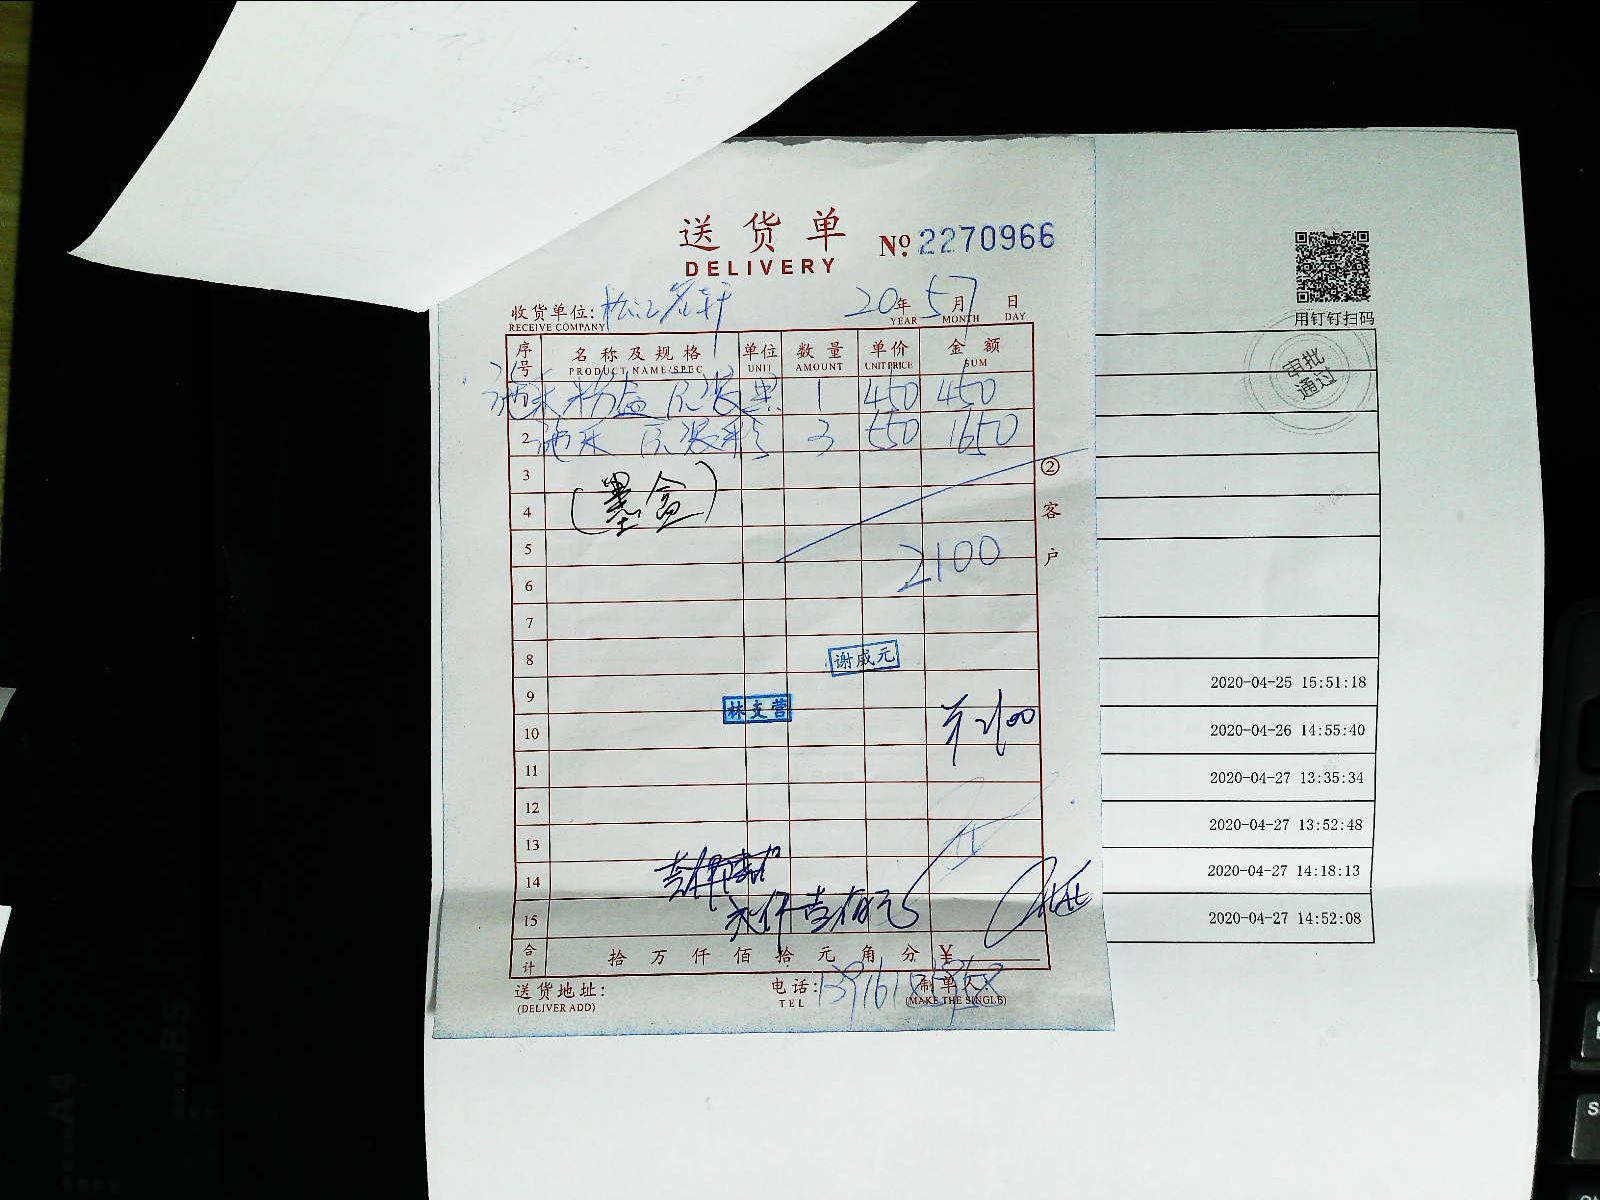 送货单
№ 2270966
DELIVERY
收货单位: 松江名轩 20年 5月 7日
RECEIVE COMPANY YEAR MONTH DAY
序号 名称及规格 单位 数量 单价 金额
PRODUCT NAME/SPEC UNIT AMOUNT UNIT PRICE SUM
1 施乐粉盒 原装黑 1 450 450
2 施乐 原装彩 3 550 1650
3
(墨盒)
4
5
2100
6
7
8 谢成元
9 林支营
10 2100
11
12
13
14
15
合计 拾万仟佰拾元角分 ¥
送货地址: 电话: 制单人:
(DELIVER ADD) TEL (MAKE THE SINGLE)
② 客户
用钉钉扫码
审批通过
2020-04-25 15:51:18
2020-04-26 14:55:40
2020-04-27 13:35:34
2020-04-27 13:52:48
2020-04-27 14:18:13
2020-04-27 14:52:08